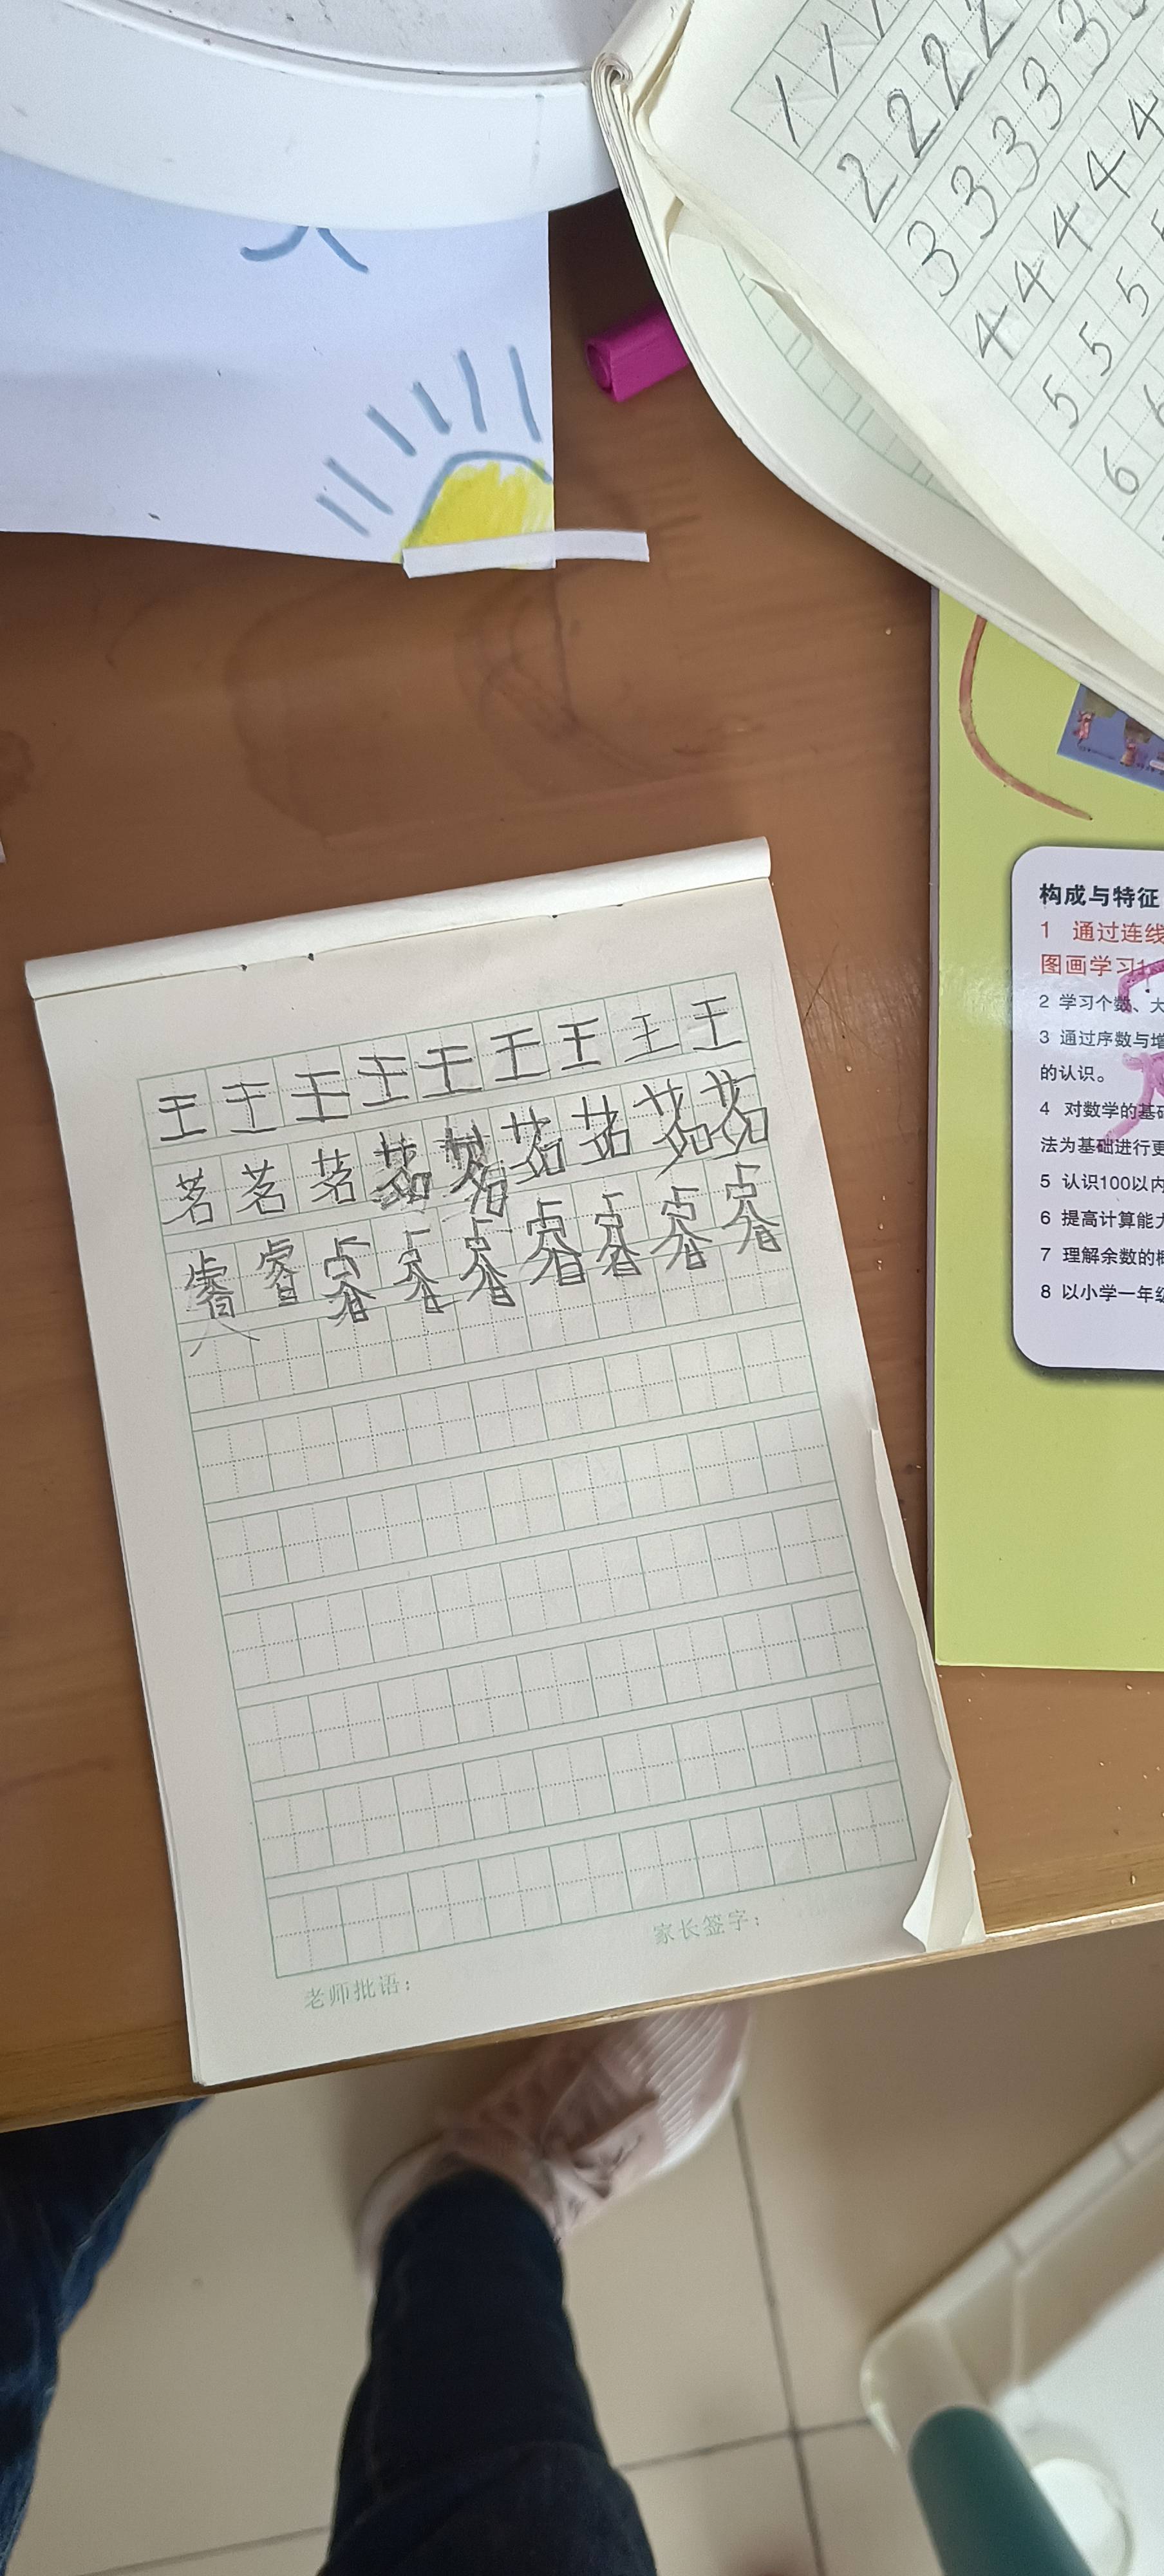 1 1 1
2 2 2 2
3 3 3 3 3
4 4 4 4 4
5 5 5 5
6 6
王 王 王 王 王 王 王 王 王
茗 茗 茗 茗 茗 茗 茗 茗 茗
睿 睿 睿 睿 睿 睿 睿 睿 睿
家长签字：
老师批语：
构成与特征
1 通过连线
图画学习1
2 学习个数、大
3 通过序数与增
的认识。
4 对数学的基础
法为基础进行更
5 认识100以内
6 提高计算能力
7 理解余数的概
8 以小学一年级